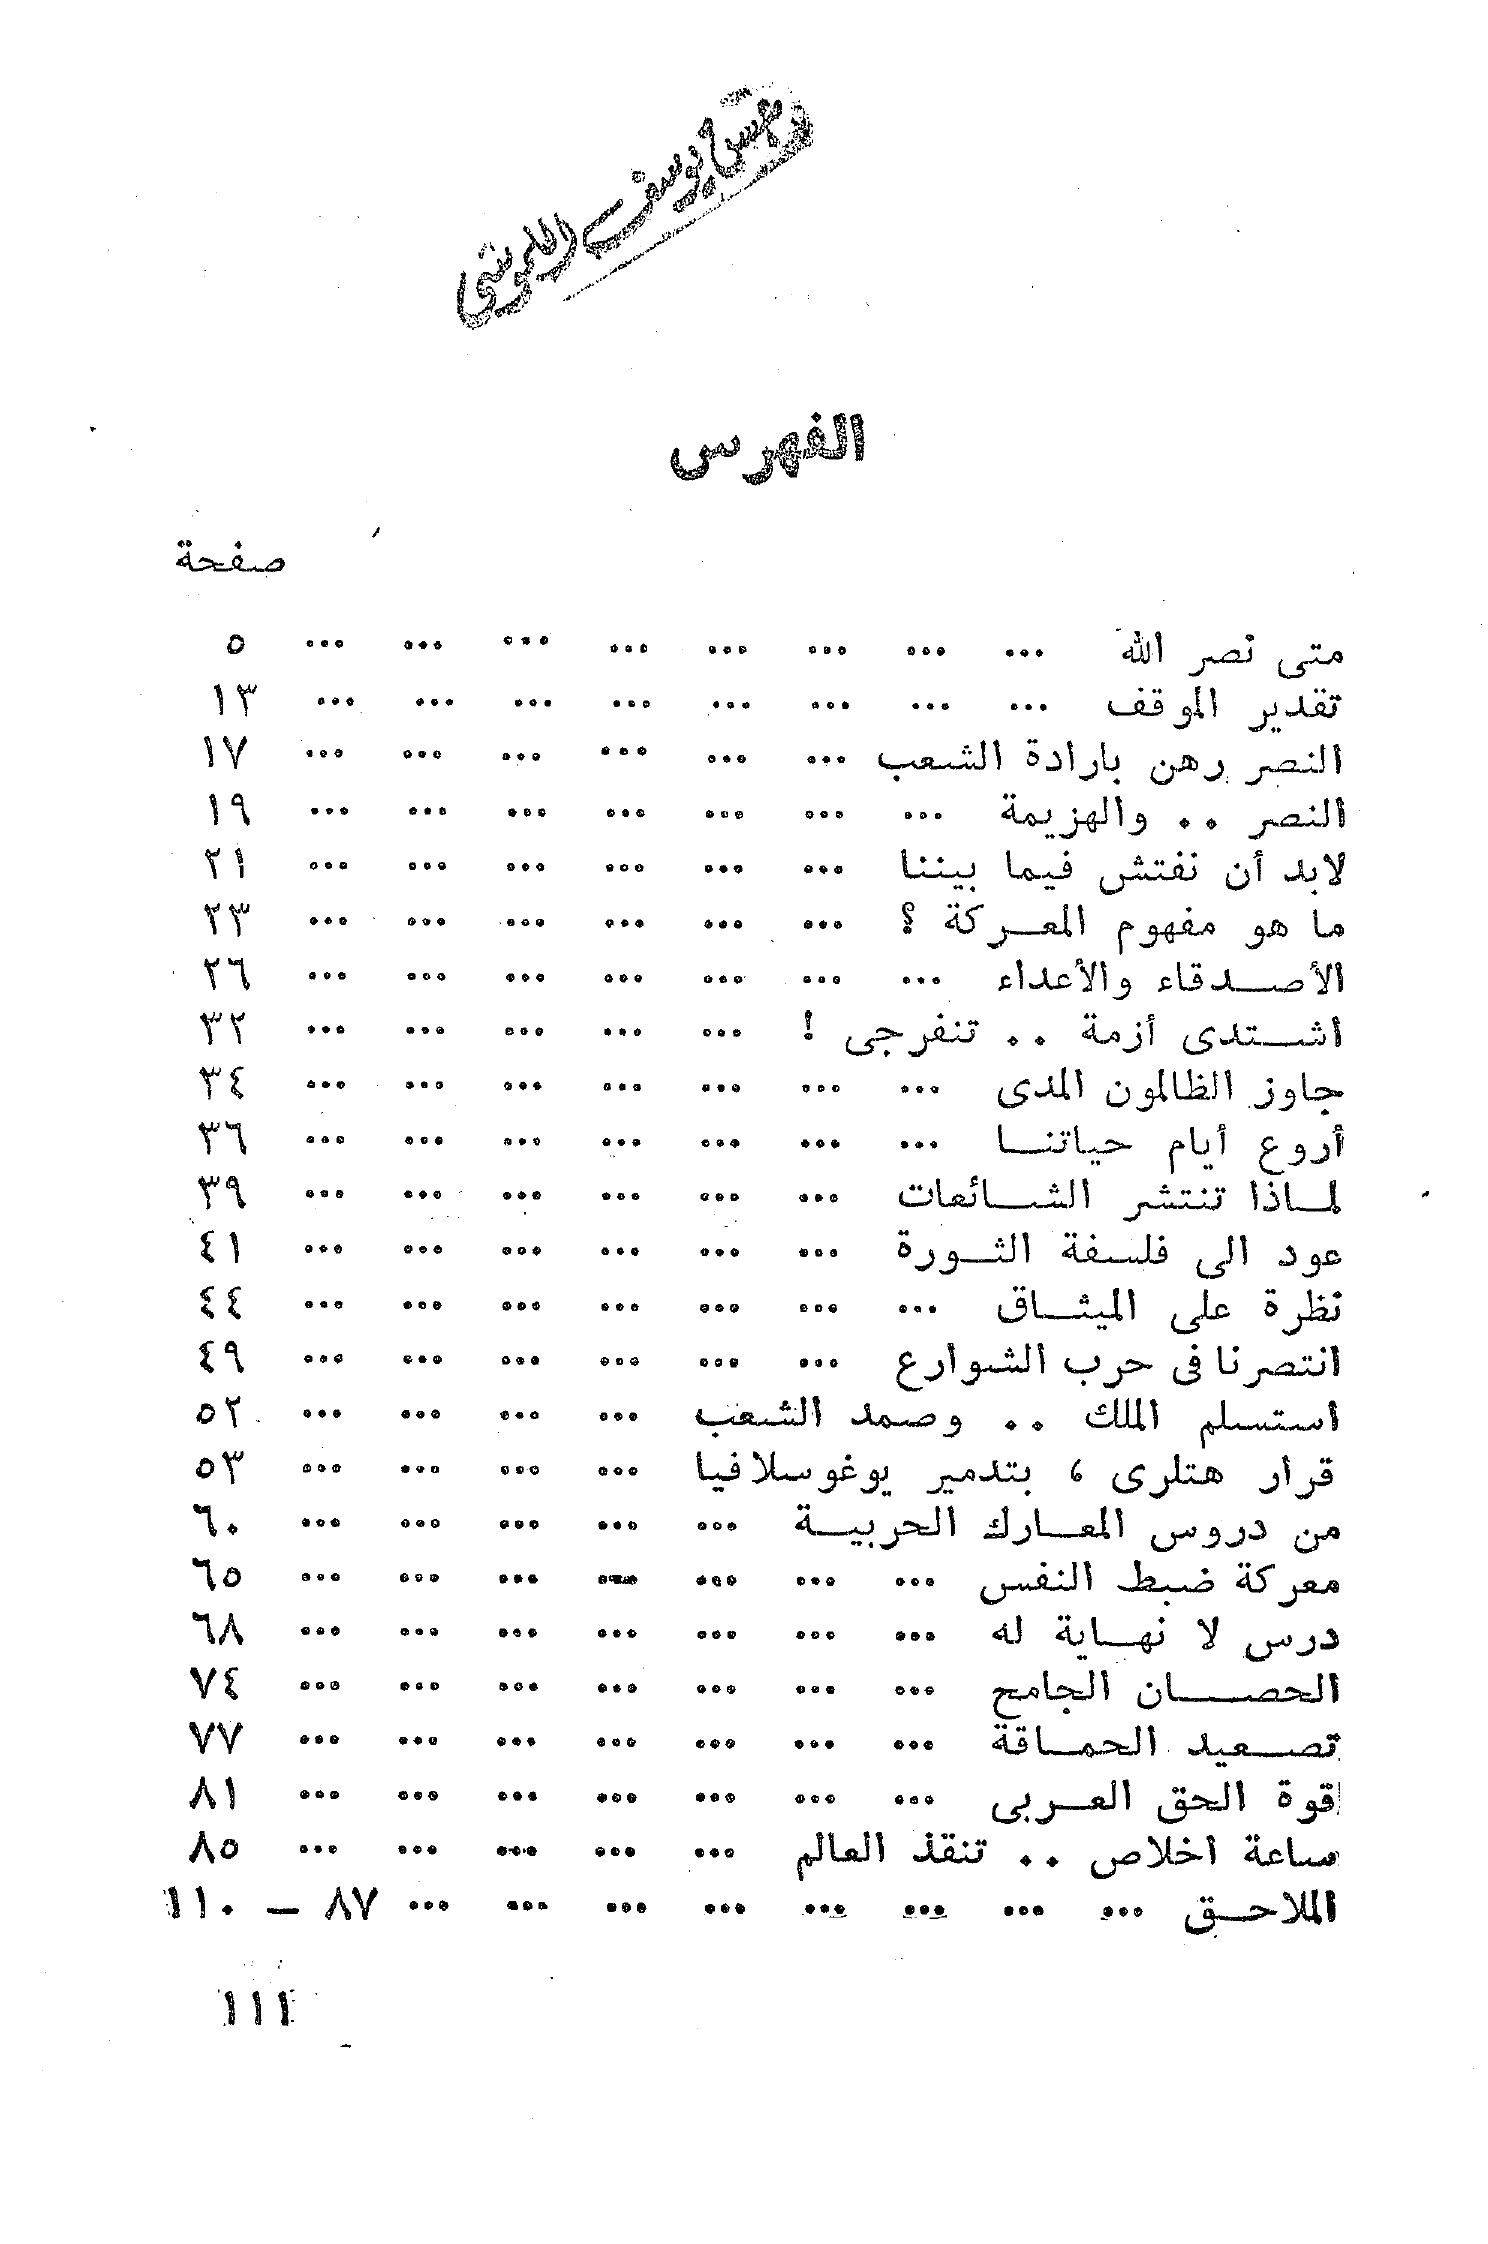 يوسف
الفهرس
صفحة
متى نصر الله ... ... ... ... ... ... ... ... ٥
تقدير الموقف ... ... ... ... ... ... ... ... ١٣
النصر رهن بارادة الشعب ... ... ... ... ... ... ١٧
النصر .. والهزيمة ... ... ... ... ... ... ... ١٩
لابد أن نفتش فيما بيننا ... ... ... ... ... ... ٢١
ما هو مفهوم المعركة ؟ ... ... ... ... ... ... ٢٣
الأصدقاء والأعداء ... ... ... ... ... ... ... ٢٦
اشتدى أزمة .. تنفرجى ! ... ... ... ... ... ٣٢
جاوز الظالمون المدى ... ... ... ... ... ... ... ٣٤
أروع أيام حياتنا ... ... ... ... ... ... ... ٣٦
لماذا تنتشر الشائعات ... ... ... ... ... ... ٣٩
عود الى فلسفة الثورة ... ... ... ... ... ... ٤١
نظرة على الميثاق ... ... ... ... ... ... ... ٤٤
انتصرنا فى حرب الشوارع ... ... ... ... ... ... ٤٩
استسلم الملك .. وصمد الشعب ... ... ... ... ٥٢
قرار هتلرى ، بتدمير يوغوسلافيا ... ... ... ... ٥٣
من دروس المعارك الحربية ... ... ... ... ... ٦٠
معركة ضبط النفس ... ... ... ... ... ... ... ٦٥
درس لا نهاية له ... ... ... ... ... ... ... ٦٨
الحصان الجامح ... ... ... ... ... ... ... ٧٤
تصعيد الحماقة ... ... ... ... ... ... ... ٧٧
قوة الحق العربى ... ... ... ... ... ... ... ٨١
ساعة اخلاص .. تنقذ العالم ... ... ... ... ... ٨٥
الملاحق ... ... ... ... ... ... ... ... ٨٧ – ١١٠
١١١